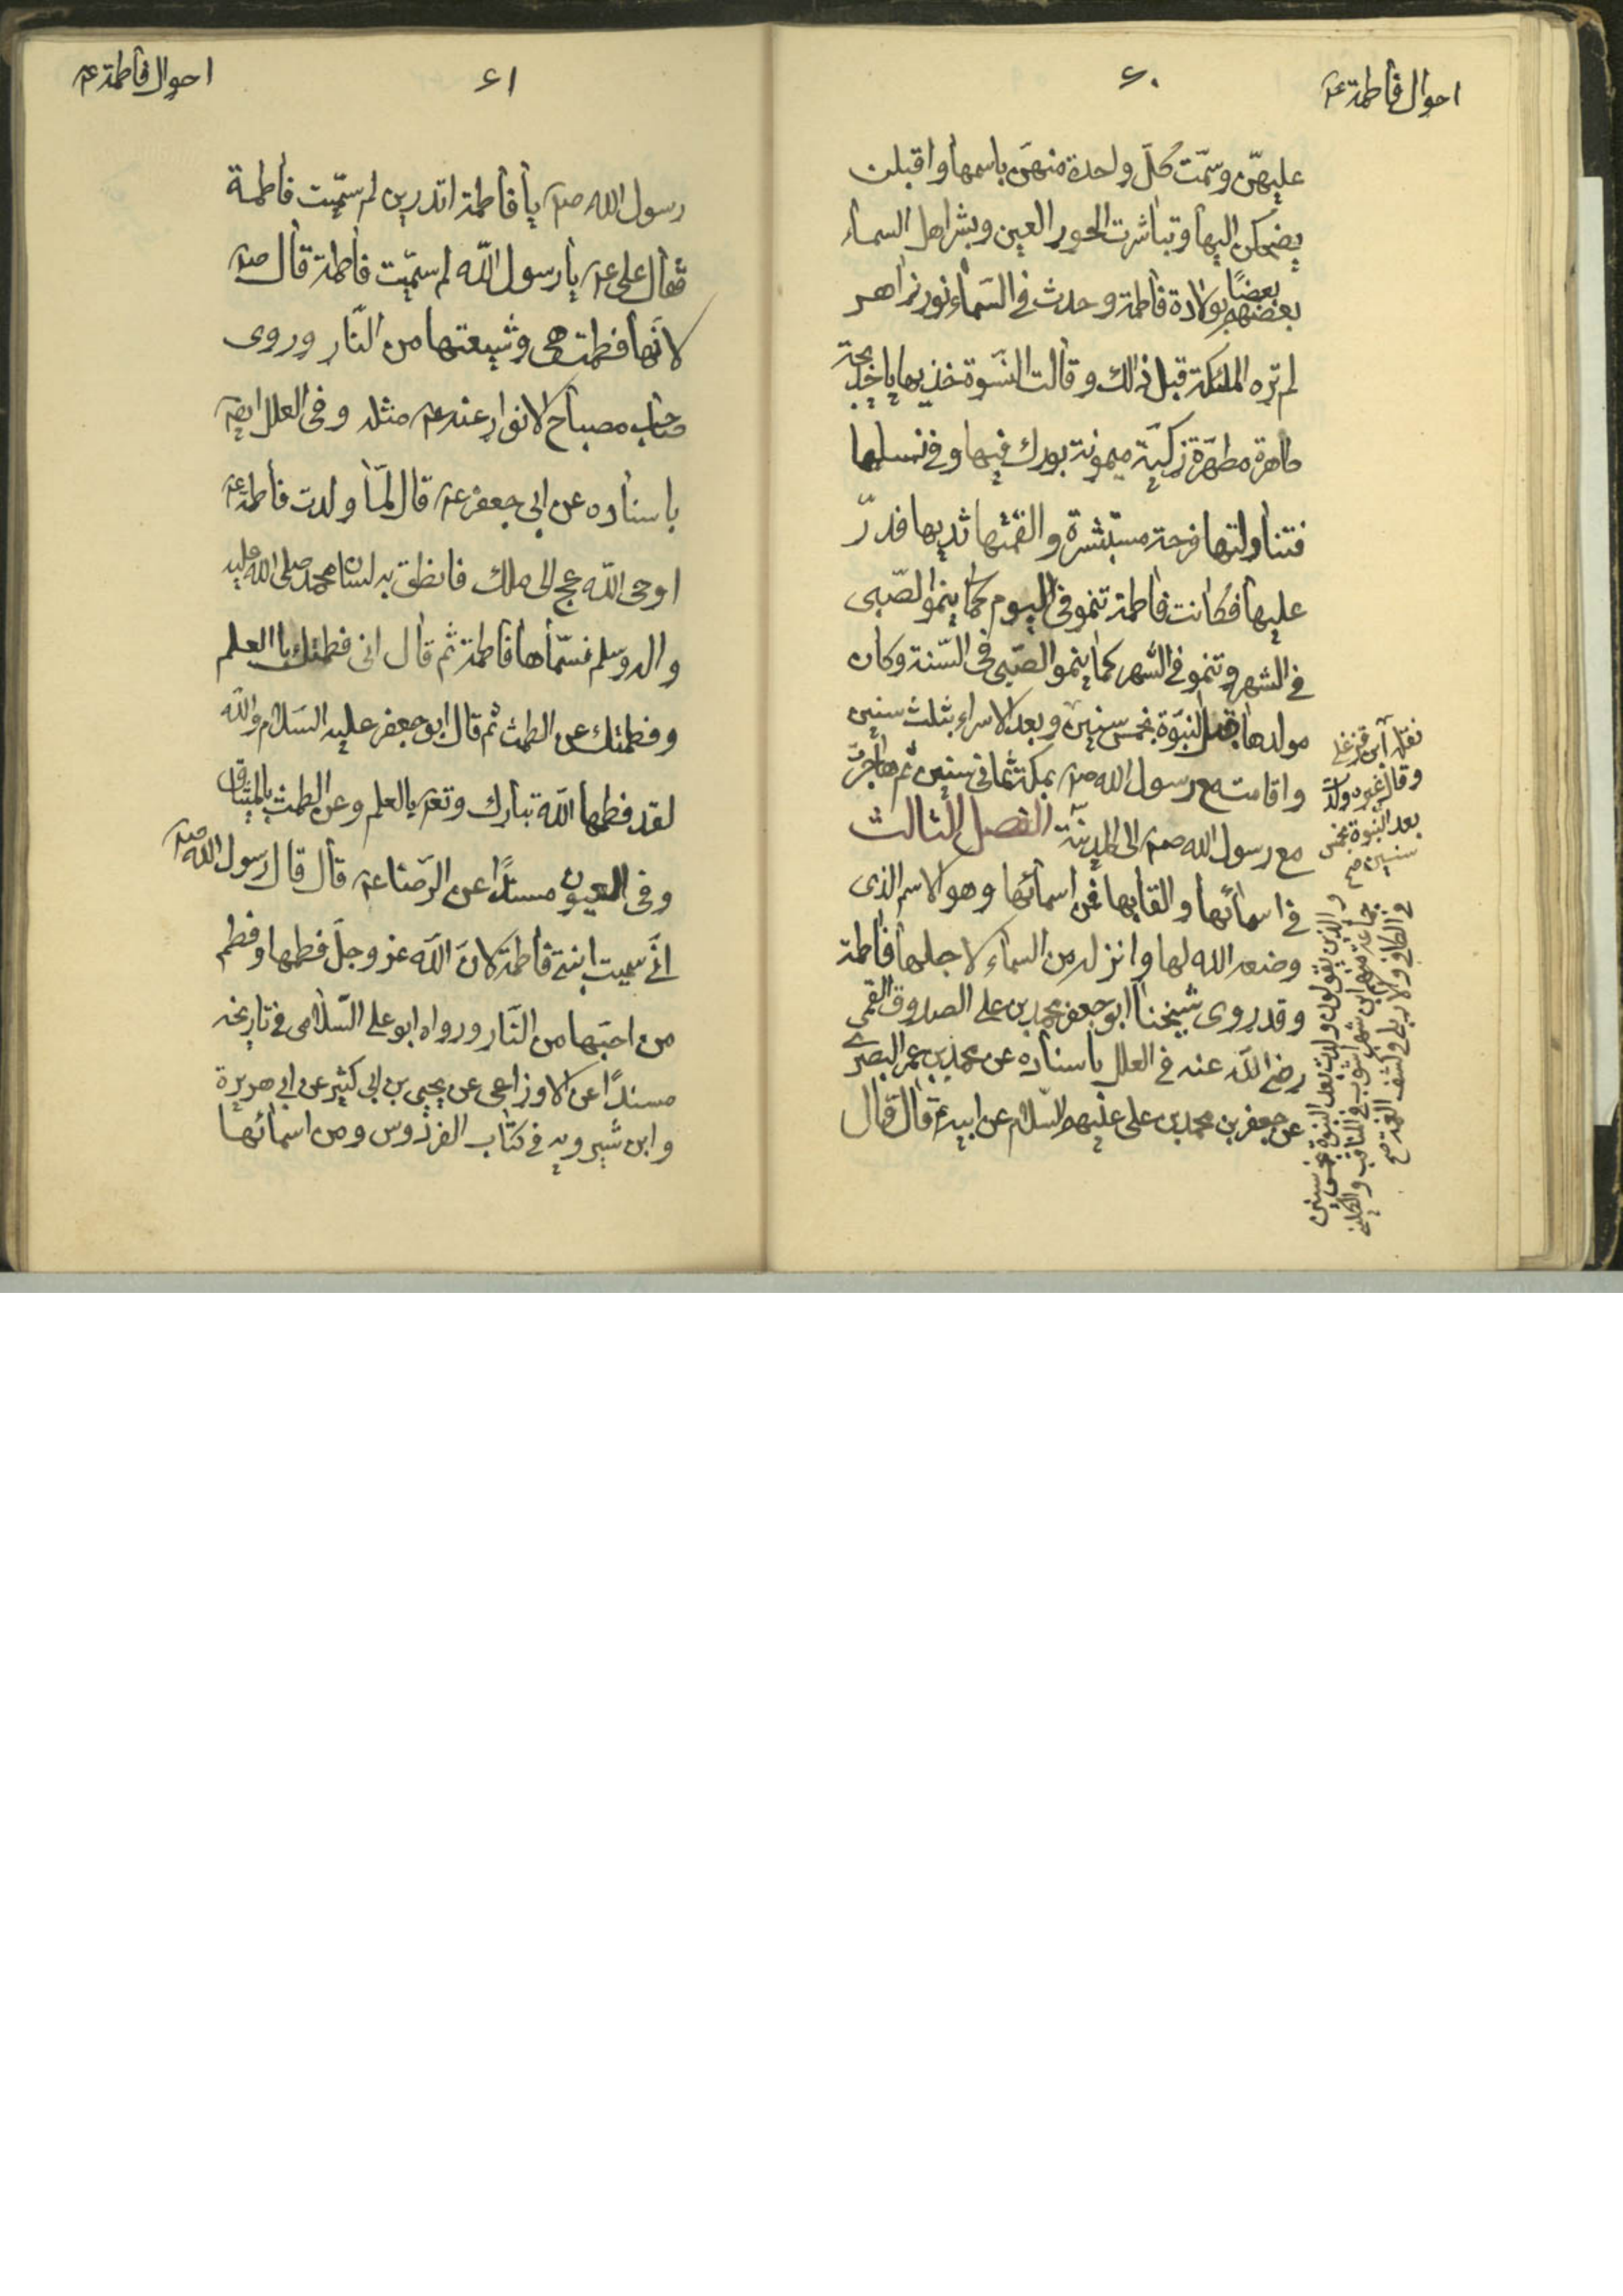 احوال فاطمة ع
٦٠
عليهنّ وسمّت كلّ واحدة منهنّ باسمها واقبلن
يضحكن اليها وتباشرت الحور العين وبشر اهل السماء
بعضهم بعضًا بولادة فاطمة وحدث في السّماء نور زاهر
لم تره الملئكة قبل ذالك وقالت النّسوة خذيها يا خديجة
طاهرة مطهّرة زكيّة ميمونة بورك فيها وفي نسلها
فتناولتها فرحة مستبشرة والقمتها ثديها فدرّ
عليها فكانت فاطمة تنمو في اليوم كما ينمو الصّبى
في الشهر وتنمو في الشهر كما ينمو الصّبى في السّنة وكان
مولدها قبل النبوّة بخمس سنين وبعد الاسراء بثلث سنين
واقامت مع رسول الله ص بمكة ثماني سنين ثم هاجرت
مع رسول الله ص الى المدينة الفصل الثالث
في اسمائها والقابها فمن اسمائها وهو الاسم الذى
وضعه الله لها وانزله من السماء لاجلها فاطمة
وقد روى شيخنا ابو جعفر محمد بن على الصدوق القمى
رضى الله عنه في العلل باسناده عن محمد بن عمر البصرى
عن جعفر بن محمد بن على عليهم السّلام عن ابيه ع قال قال
نقله ابن
وقال غيره ولدت
بعد النبوة بخمس
سنين صح
والذين يقولون ولدت بعد النبوة بخمس سنين
جماعة منهم ابن شهر اشوب في المناقب والكلينى
في الكافى والاربلى في كشف الغمة صح
احوال فاطمة ع
٦١
رسول الله ص يا فاطمة اتدرين لم سمّيت فاطمة
فقال على ع يا رسول الله لم سمّيت فاطمة قال ص
لانّها فطمت هى وشيعتها من النّار وروى
صاحب مصباح الانوار عنه ع مثله وفى العلل ايضا
باسناده عن ابى جعفر ع قال لمّا ولدت فاطمة ع
اوحى الله عج الى ملك فانطق به لسان محمد صلى الله عليه
واله وسلم فسمّاها فاطمة ثم قال انى فطمتك باالعلم
وفطمتك عن الطمث ثم قال ابو جعفر عليه السّلام والله
لقد فطمها الله تبارك وتعر بالعلم وعن الطمث بالميثاق
وفى العيون مسندًا عن الرّضا ع قال قال رسول الله ص
انّى سميت ابنتى فاطمة لانّ الله عز وجلّ فطمها وفطم
من احبّها من النّار ورواه ابو على السّلامى في تاريخه
مسندًا عن الاوزاعى عن يحيى بن ابى كثير عن ابى هريرة
وابن شيرويه في كتاب الفردوس ومن اسمائها